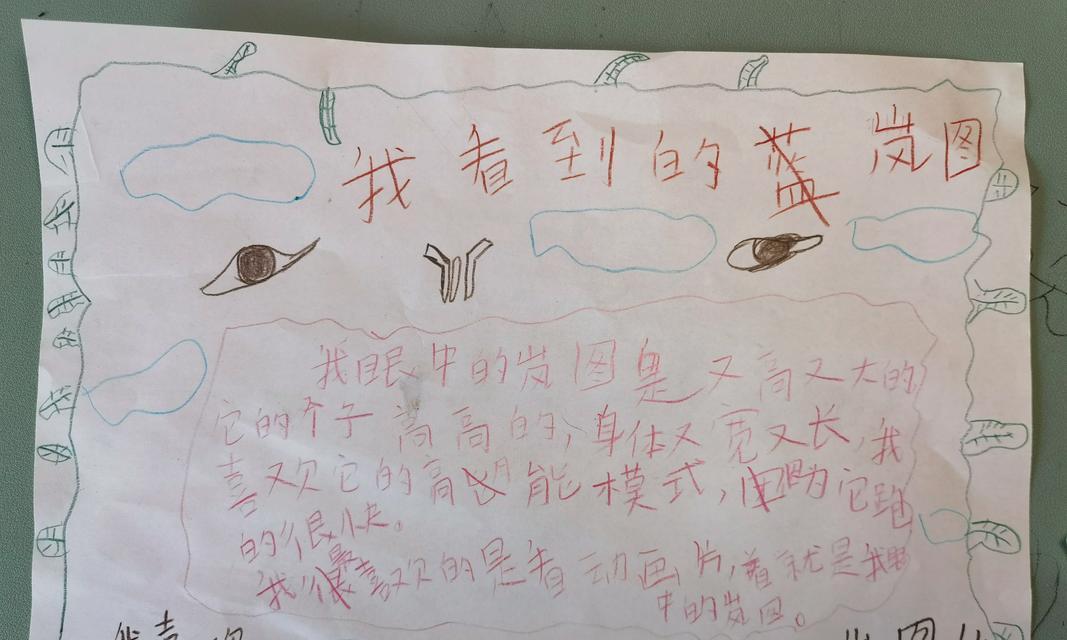 我看到的岚图
我眼中的岚图是又高又大的
它的个子高高的,身体又宽又长,我
喜欢它的高能模式,因为它跑
的很快。
我最喜欢的是看动画片,着就是我眼
中的岚图。
我喜欢
岚图